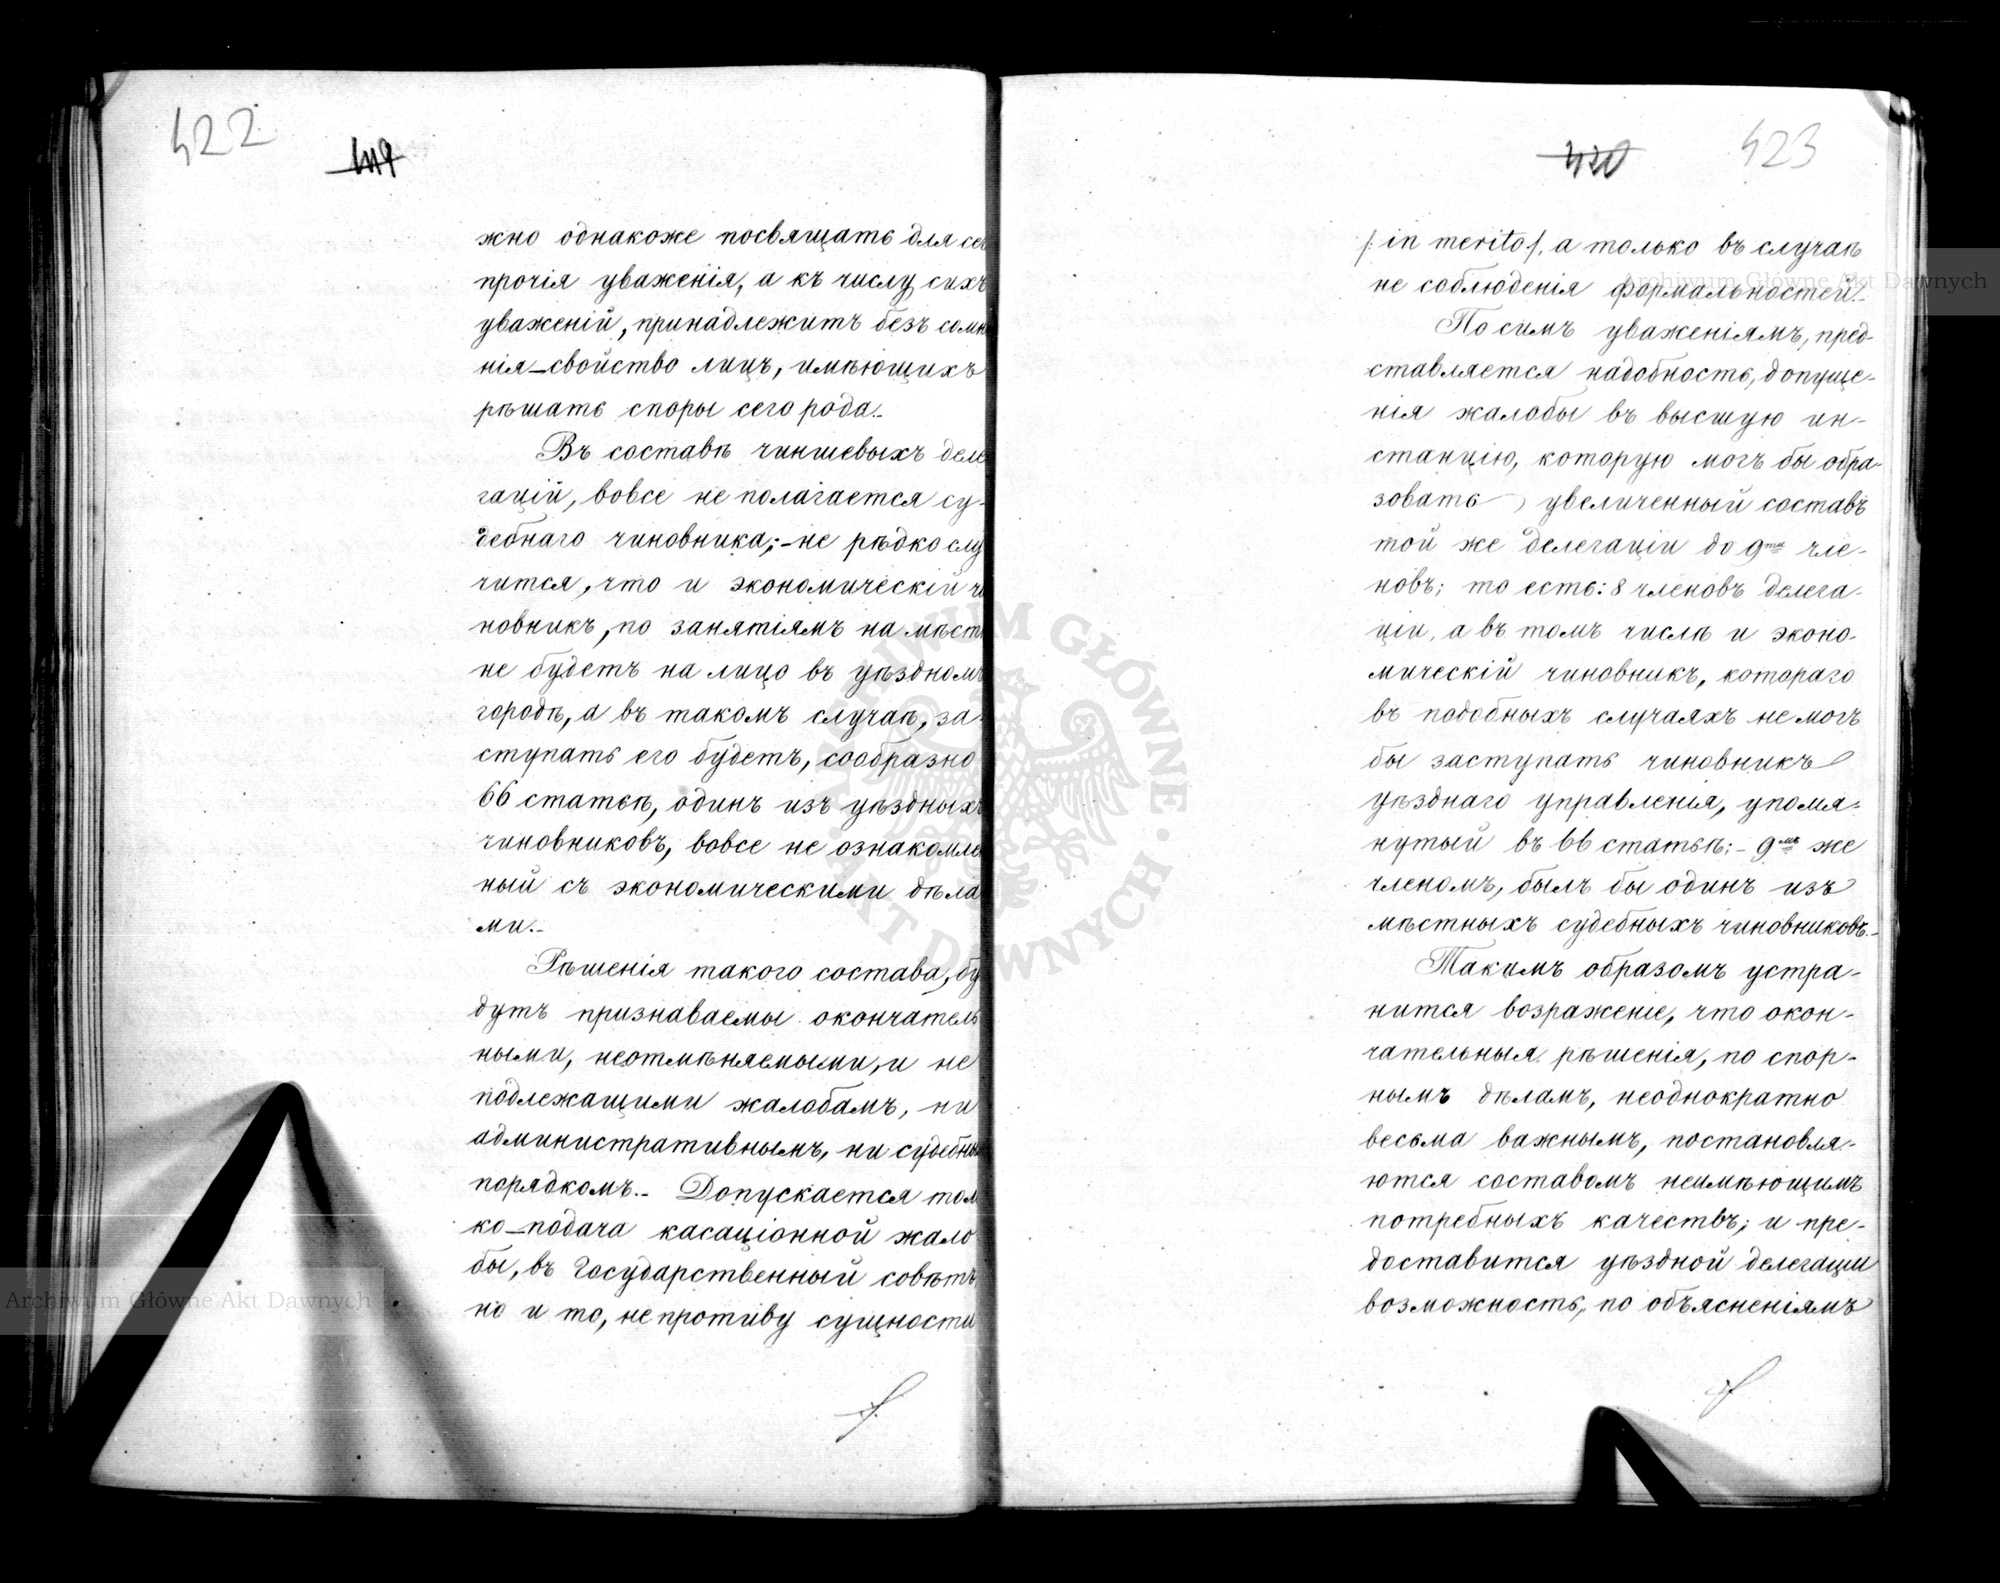 422
419
жно однакоже посвящать для се
прочія уваженія, а къ числу сихъ
уваженій, принадлежитъ безъ сомн
нія – свойство лицъ, имѣющихъ
рѣшать споры сего рода.–
Въ составѣ чиншевыхъ деле
гацій, вовсе не полагается су-
дебнаго чиновника; – не рѣдко слу
чится, что и экономическій чи
новникъ, по занятіямъ на мѣстѣ
не будетъ на лицо въ уѣздномъ
городѣ, а въ такомъ случаѣ, за-
ступать его будетъ, сообразно
66 статьѣ, одинъ изъ уѣздныхъ
чиновниковъ, вовсе не ознакомле
ный съ экономическими дѣла
ми.–
Рѣшенія такого состава, бу
дутъ признаваемы окончатель
ными, неотмѣняемыми, и не
подлежащими жалобамъ, ни
административнымъ, ни судебны
порядкомъ.– Допускается толь
ко – подача касаціонной жало
бы, въ Государственный совѣтъ,
но и то, не противу сущности
420
423
/: in merito /, а только въ случаѣ
не соблюденія формальностей.–
По симъ уваженіямъ, пред-
ставляется надобность, допуще-
нія жалобы въ высшую ин-
станцію, которую могъ бы обра-
зовать увеличенный составъ
той же делегаціи до 9ти чле-
новъ; то есть: 8 членовъ делега-
ціи, а въ томъ числѣ и эконо-
мическій чиновникъ, котораго
въ подобныхъ случаяхъ не могъ
бы заступать чиновникъ
уѣзднаго управленія, упомя-
нутый въ 66 статьѣ; – 9мъ же
членомъ, былъ бы одинъ изъ
мѣстныхъ судебныхъ чиновниковъ.–
Такимъ образомъ устра-
нится возраженіе, что окон-
чательныя рѣшенія, по спор-
нымъ дѣламъ, неоднократно
весьма важнымъ, постановля-
ются составомъ неимѣющимъ
потребныхъ качествъ; и пре-
доставится уѣздной делегаціи
возможность, по объясненіямъ
Archiwum Główne Akt Dawnych
Archiwum Główne Akt Dawnych
ARCHIWUM GŁÓWNE · AKT DAWNYCH ·